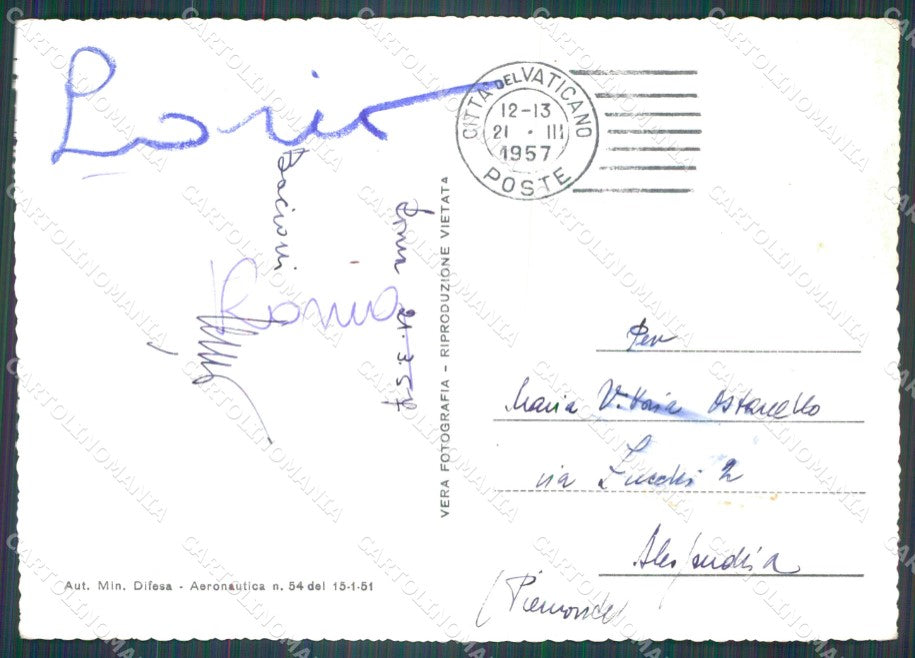 CITTÀ DEL VATICANO
12-13
21 · III
1957
POSTE
Bacioni
Roma 21.3.57
VERA FOTOGRAFIA - RIPRODUZIONE VIETATA
Per
Maria Vittoria
via 2
Alessandria
(Piemonte)
Aut. Min. Difesa - Aeronautica n. 54 del 15-1-51
CARTOLINOMANIA